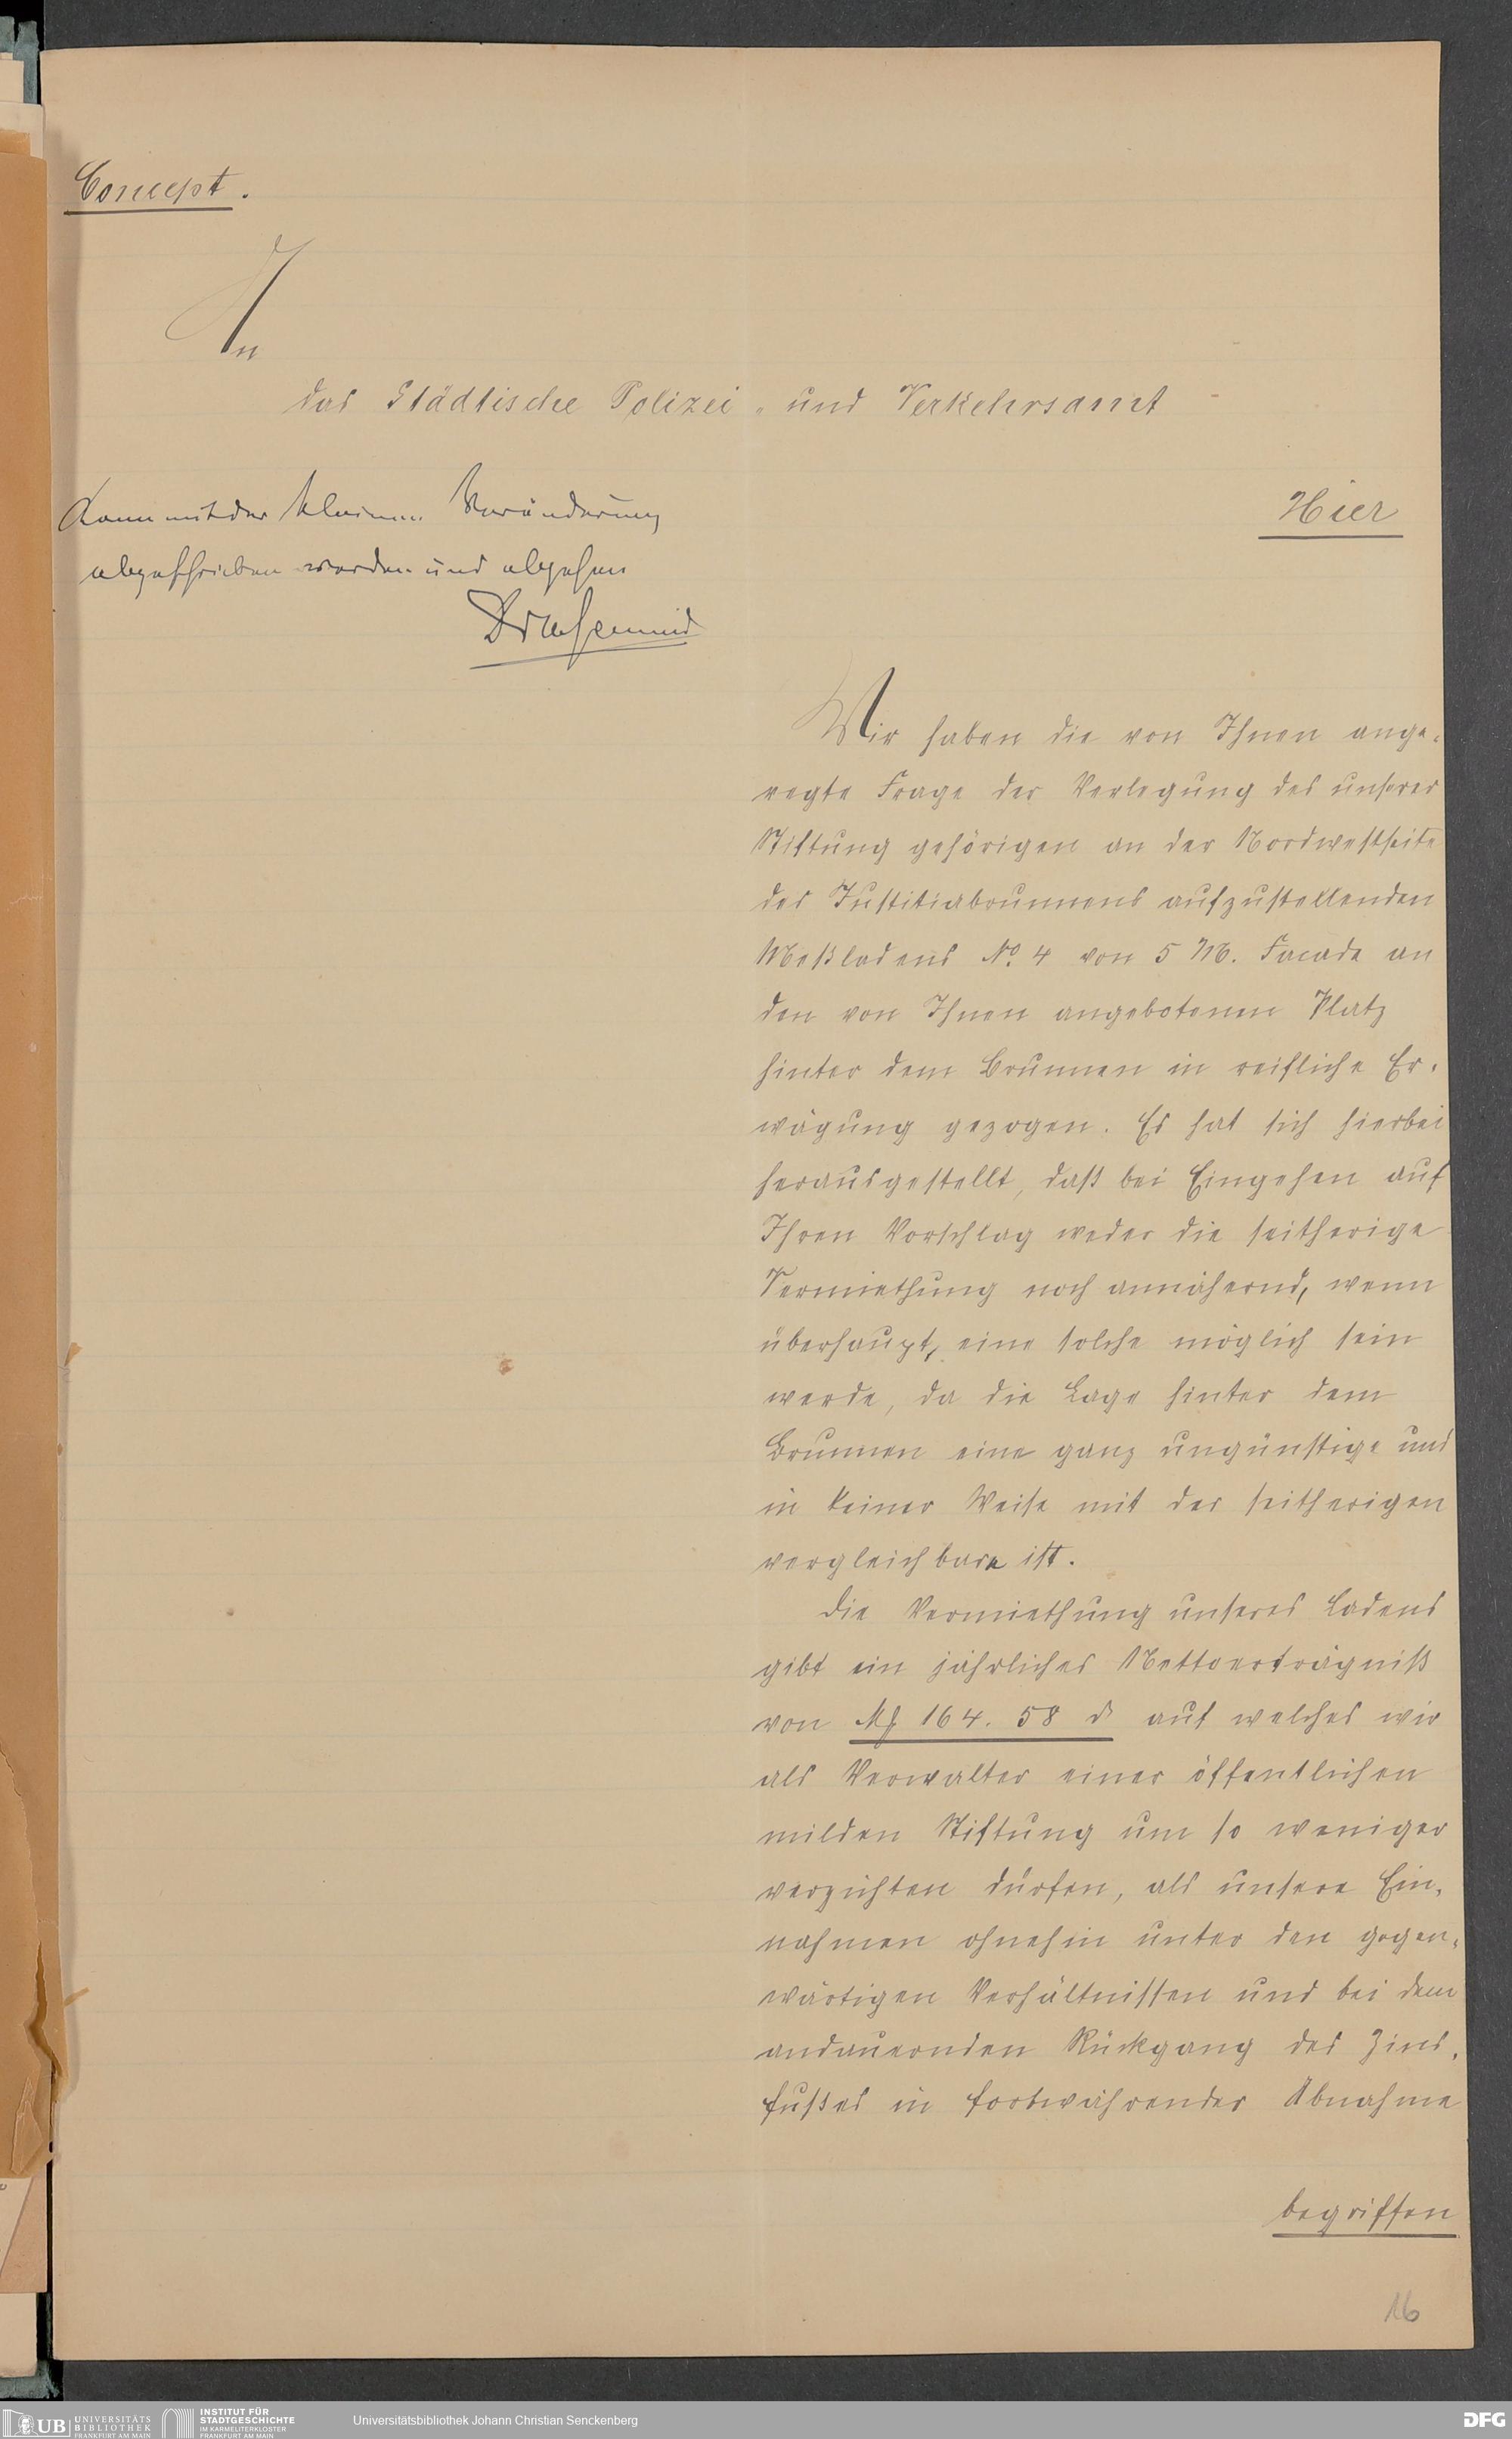 Concept.
An
das Städtische Polizei- und Verkehrsamt
Hier
Kann mit der kleinen Veränderung
abgeschrieben werden und abgehen
Wir haben die von Ihnen ange-
regte Frage der Verlegung des unserer
Stiftung gehörigen an der Nordwestseite
des Justitiabrunnens aufzustellenden
Meßladens No. 4 von 5 M. Facade an
den von Ihnen angebotenen Platz
hinter dem Brunnen in reifliche Er-
wägung gezogen. Es hat sich hierbei
herausgestellt, daß bei Eingehen auf
Ihren Vorschlag weder die seitherige
Vermiethung noch annähernd, wenn
überhaupt, eine solche möglich sein
werde, da die Lage hinter dem
Brunnen eine ganz ungünstige und
in keiner Weise mit der seitherigen
vergleichbare ist.
Die Vermiethung unseres Ladens
gibt ein jährliches Nettoerträgniß
von M 164. 58 ₰ auf welches wir
als Verwalter einer öffentlichen
milden Stiftung um so weniger
verzichten dürfen, als unsere Ein-
nahmen ohnehin unter den gegen-
wärtigen Verhältnissen und bei dem
andauernden Rückgang des Zins-
fußes in fortwährender Abnahme
begriffen
16
UB UNIVERSITÄTS
BIBLIOTHEK
FRANKFURT AM MAIN
INSTITUT FÜR
STADTGESCHICHTE
IM KARMELITERKLOSTER
FRANKFURT AM MAIN
Universitätsbibliothek Johann Christian Senckenberg
DFG